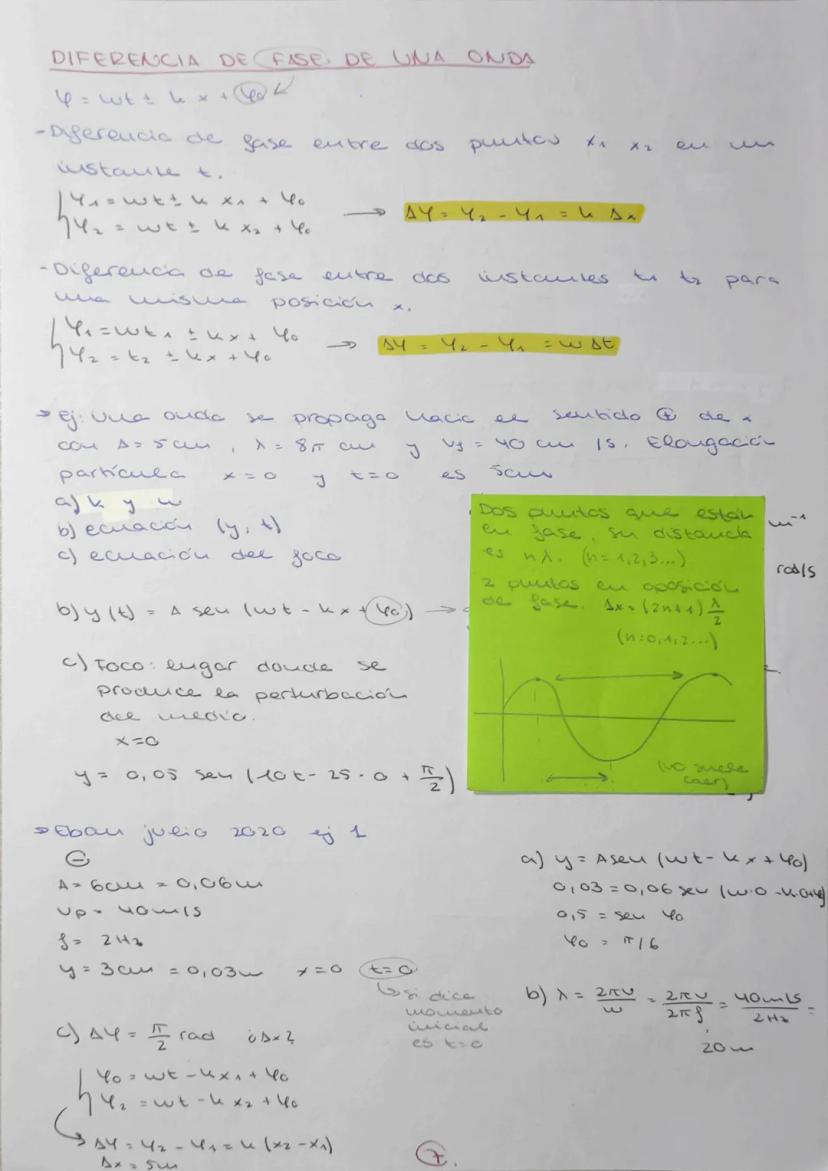 DIFERENCIA DE FASE DE UNA ONDA
φ = wt ± k x + φ₀
- Diferencia de fase entre dos puntos x₁ x₂ en un
instante t.
φ₁ = wt ± k x₁ + φ₀
φ₂ = wt ± k x₂ + φ₀
→ Δφ = φ₂ - φ₁ = k Δx
- Diferencia de fase entre dos instantes t₁ t₂ para
una misma posición x.
φ₁ = wt₁ ± kx + φ₀
φ₂ = t₂ ± kx + φ₀
→ Δφ = φ₂ - φ₁ = w Δt
→ Ej: Una onda se propaga hacia el sentido ⊕ de x
con A = 5 cm, λ = 8π cm y vp = 40 cm/s. Elongación
partícula x=0 y t=0 es 5cm
a) k y w
b) ecuación (y, t)
c) ecuación del foco
m⁻¹
rad/s
Dos puntos que están
en fase, su distancia
es nλ. (n = 1,2,3...)
2 puntos en oposición
de fase. Δx = (2n+1) λ/2
(n=0,1,2...)
(no suele
caer)
b) y(t) = A sen (wt - kx + φ₀) →
c) Foco: lugar donde se
produce la perturbación
del medio.
x=0
y = 0,05 sen (10t - 25 · 0 + π/2)
→ Ebau julio 2020 ej 1
⊖
A = 6cm = 0,06m
vp = 40m/s
f = 2Hz
y = 3cm = 0,03m x=0 t=0
↳ si dice
momento
inicial
es t=0
a) y = A sen (wt - kx + φ₀)
0,03 = 0,06 sen (w·0 - k·0+φ₀)
0,5 = sen φ₀
φ₀ = π/6
b) λ = 2πv/w = 2πv/2πf = 40m/s/2Hz =
20m
c) Δφ = π/2 rad ¿Δx?
φ₀ = wt - kx₁ + φ₀
φ₂ = wt - kx₂ + φ₀
Δφ = φ₂ - φ₁ = k (x₂ - x₁)
Δx = 5m
7.